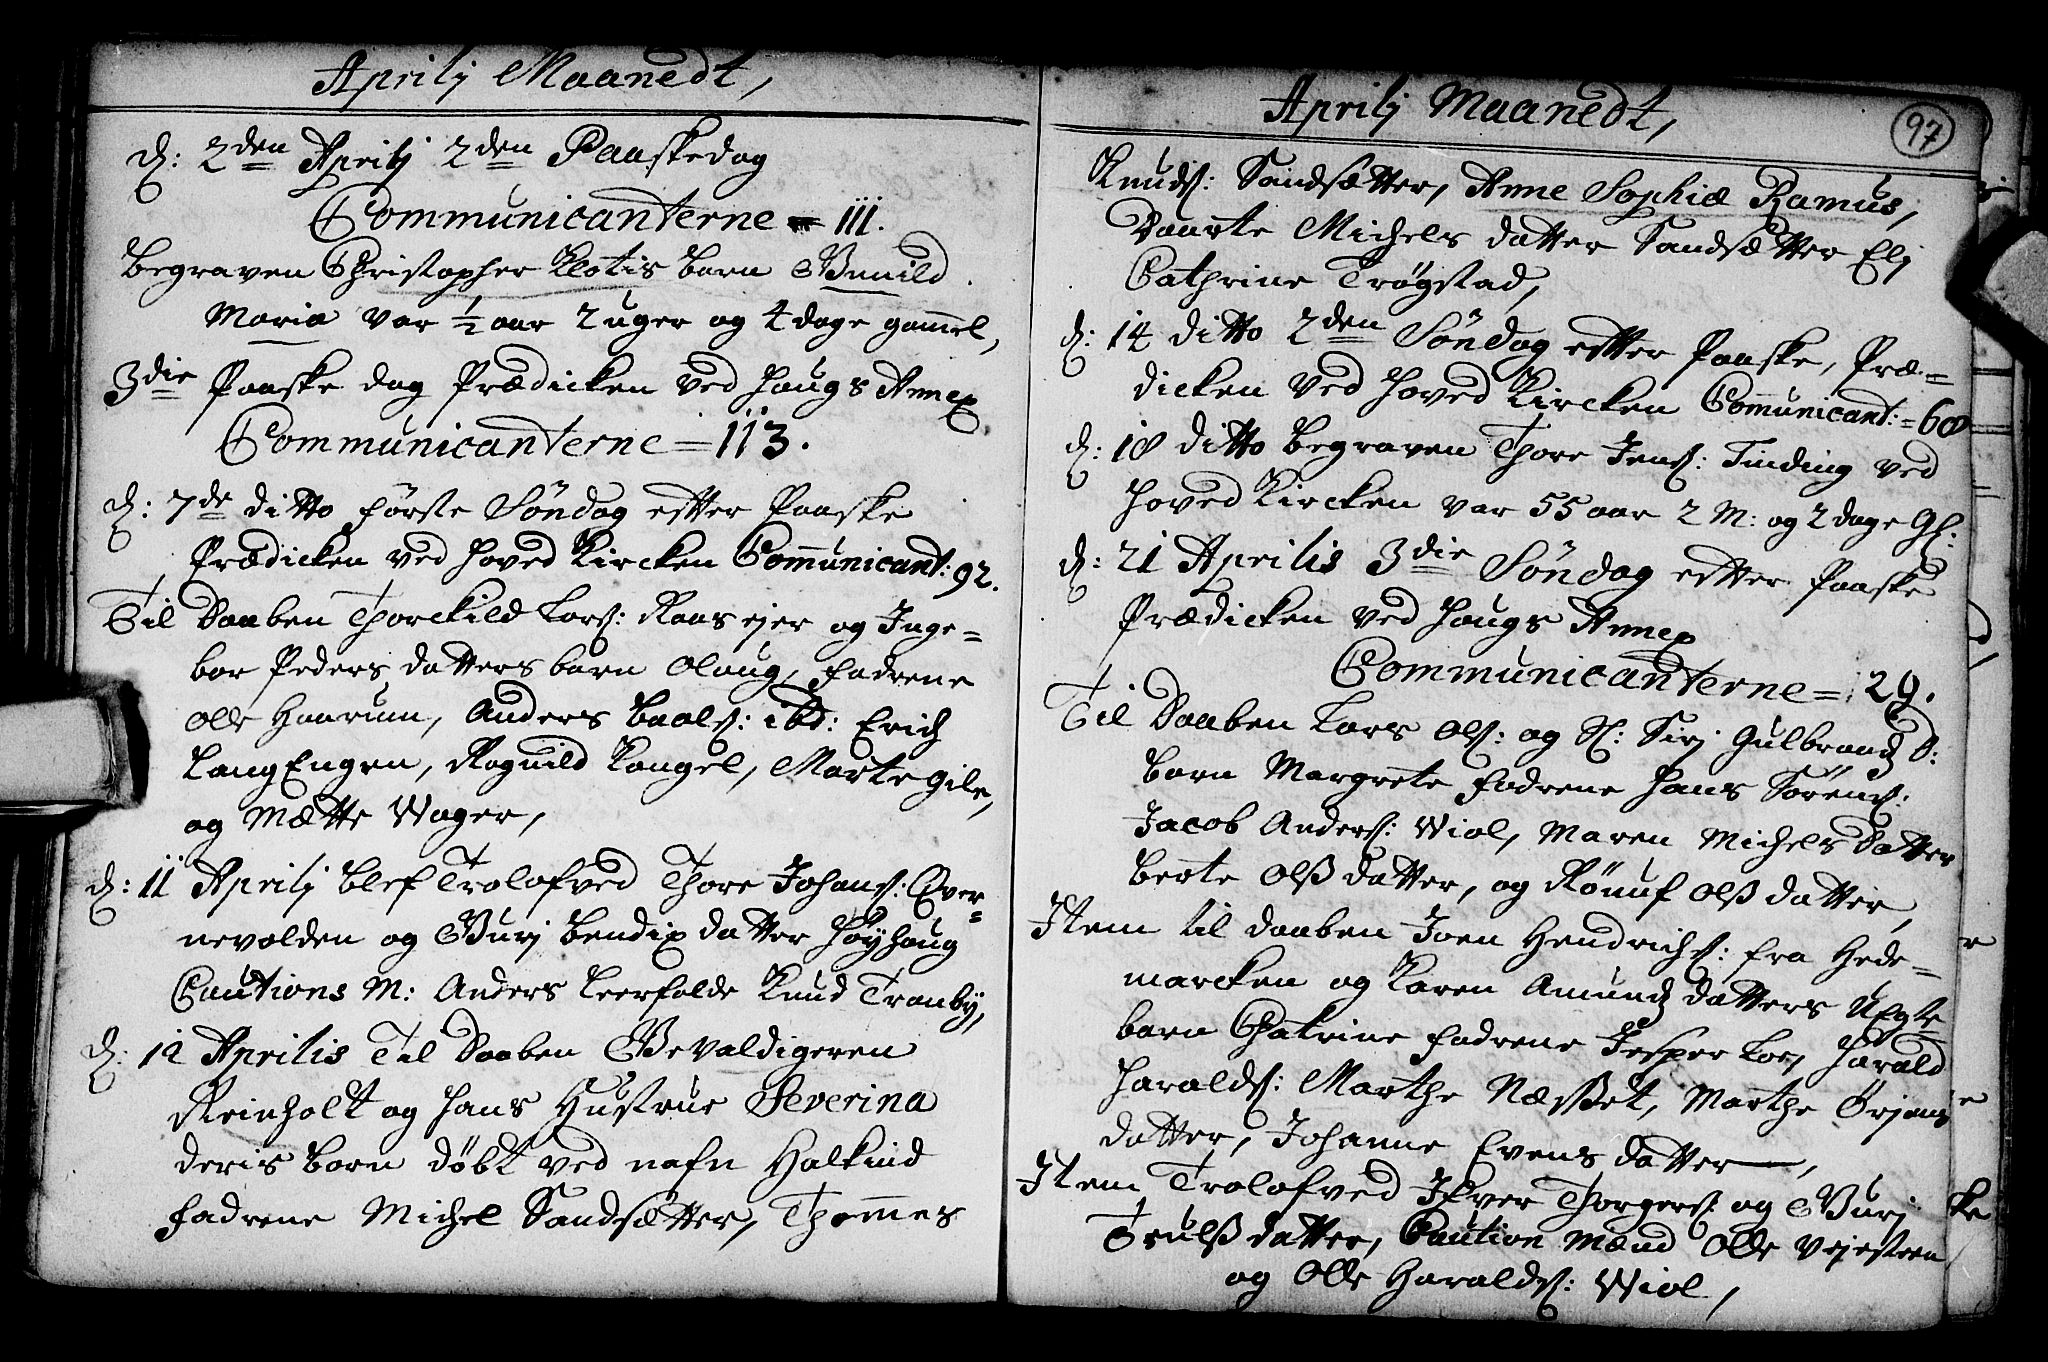 Aprilj Maanedt,
d: 2den Aprilj 2den Paaskedag
Communicanterne = 111.
Begraven Christopher Klotis barn Gunild
Maria var ½ aar 2 uger og 4 dage gammel,
3die Paaske dag Prædicken ved Haugs Annex
Communicanterne = 113.
d: 7de ditto første Söndag effter Paaske
Prædicken ved Hoved Kircken Communicant: 92.
Til Daaben Thorckild Lars: Raas ejer og Inge=
bor Peders datters barn Olaug, fadrene
Olle Haarum, Anders Baals: ibd: Erich
Lang Engen, Ragnild Kangel, Marte Gile,
og Mætte Wager,
d: 11 Aprilj blef Trolofved Thore Johans: Ever=
nevolden og Gurj Bendix datter Høyhaug
Cautions M: Anders Leerfalde Knud Tranby,
d: 12 Aprilis Til Daaben Gevaldigeren
Reinholt og hans Hustrue Severina
deris barn döbt ved nafn Halkind
fadrene Michel Sandsætter, Thommes
Aprilj Maanedt,
97
Knuds: Sandsætter, Anne Sophiæ Ramus,
Baarte Michels datter Sandsætter Elj
Cathrine Trøgstad,
d: 14 ditto 2den Söndag effter Paaske, Præ=
dicken ved Hoved Kircken Communicant: = 60
d: 18 ditto Begraven Thore Jens: Tinding ved
Hoved Kircken var 55 aar 2 M: og 2 dage Gl:
d: 21 Aprilis 3die Söndag effter Paaske
Prædicken ved Haugs Annex
Communicanterne = 29.
Til Daaben Lars Ols: og Sl: Sirj Gulbrands D:
barn Margrete fadrene Hans Sörens:
Jacob Anders: Wiol, Maren Michels Datter
Berte Olß datter, og Rönuf Olß datter,
Item til daaben Joen Hendrichs: fra Hede=
marcken og Karen Amunds datters Uægte
barn Chatrine fadrene Jesper Loej Harald
Haralds: Marthe Næsset, Marthe Örjans
datter, Johanne Evens datter,
Item Trolofved Ifver Thorgers: og Gurj
Trulß datter, Caution mænd Olle Vejesteen
og Olle Haralds: Wiol,